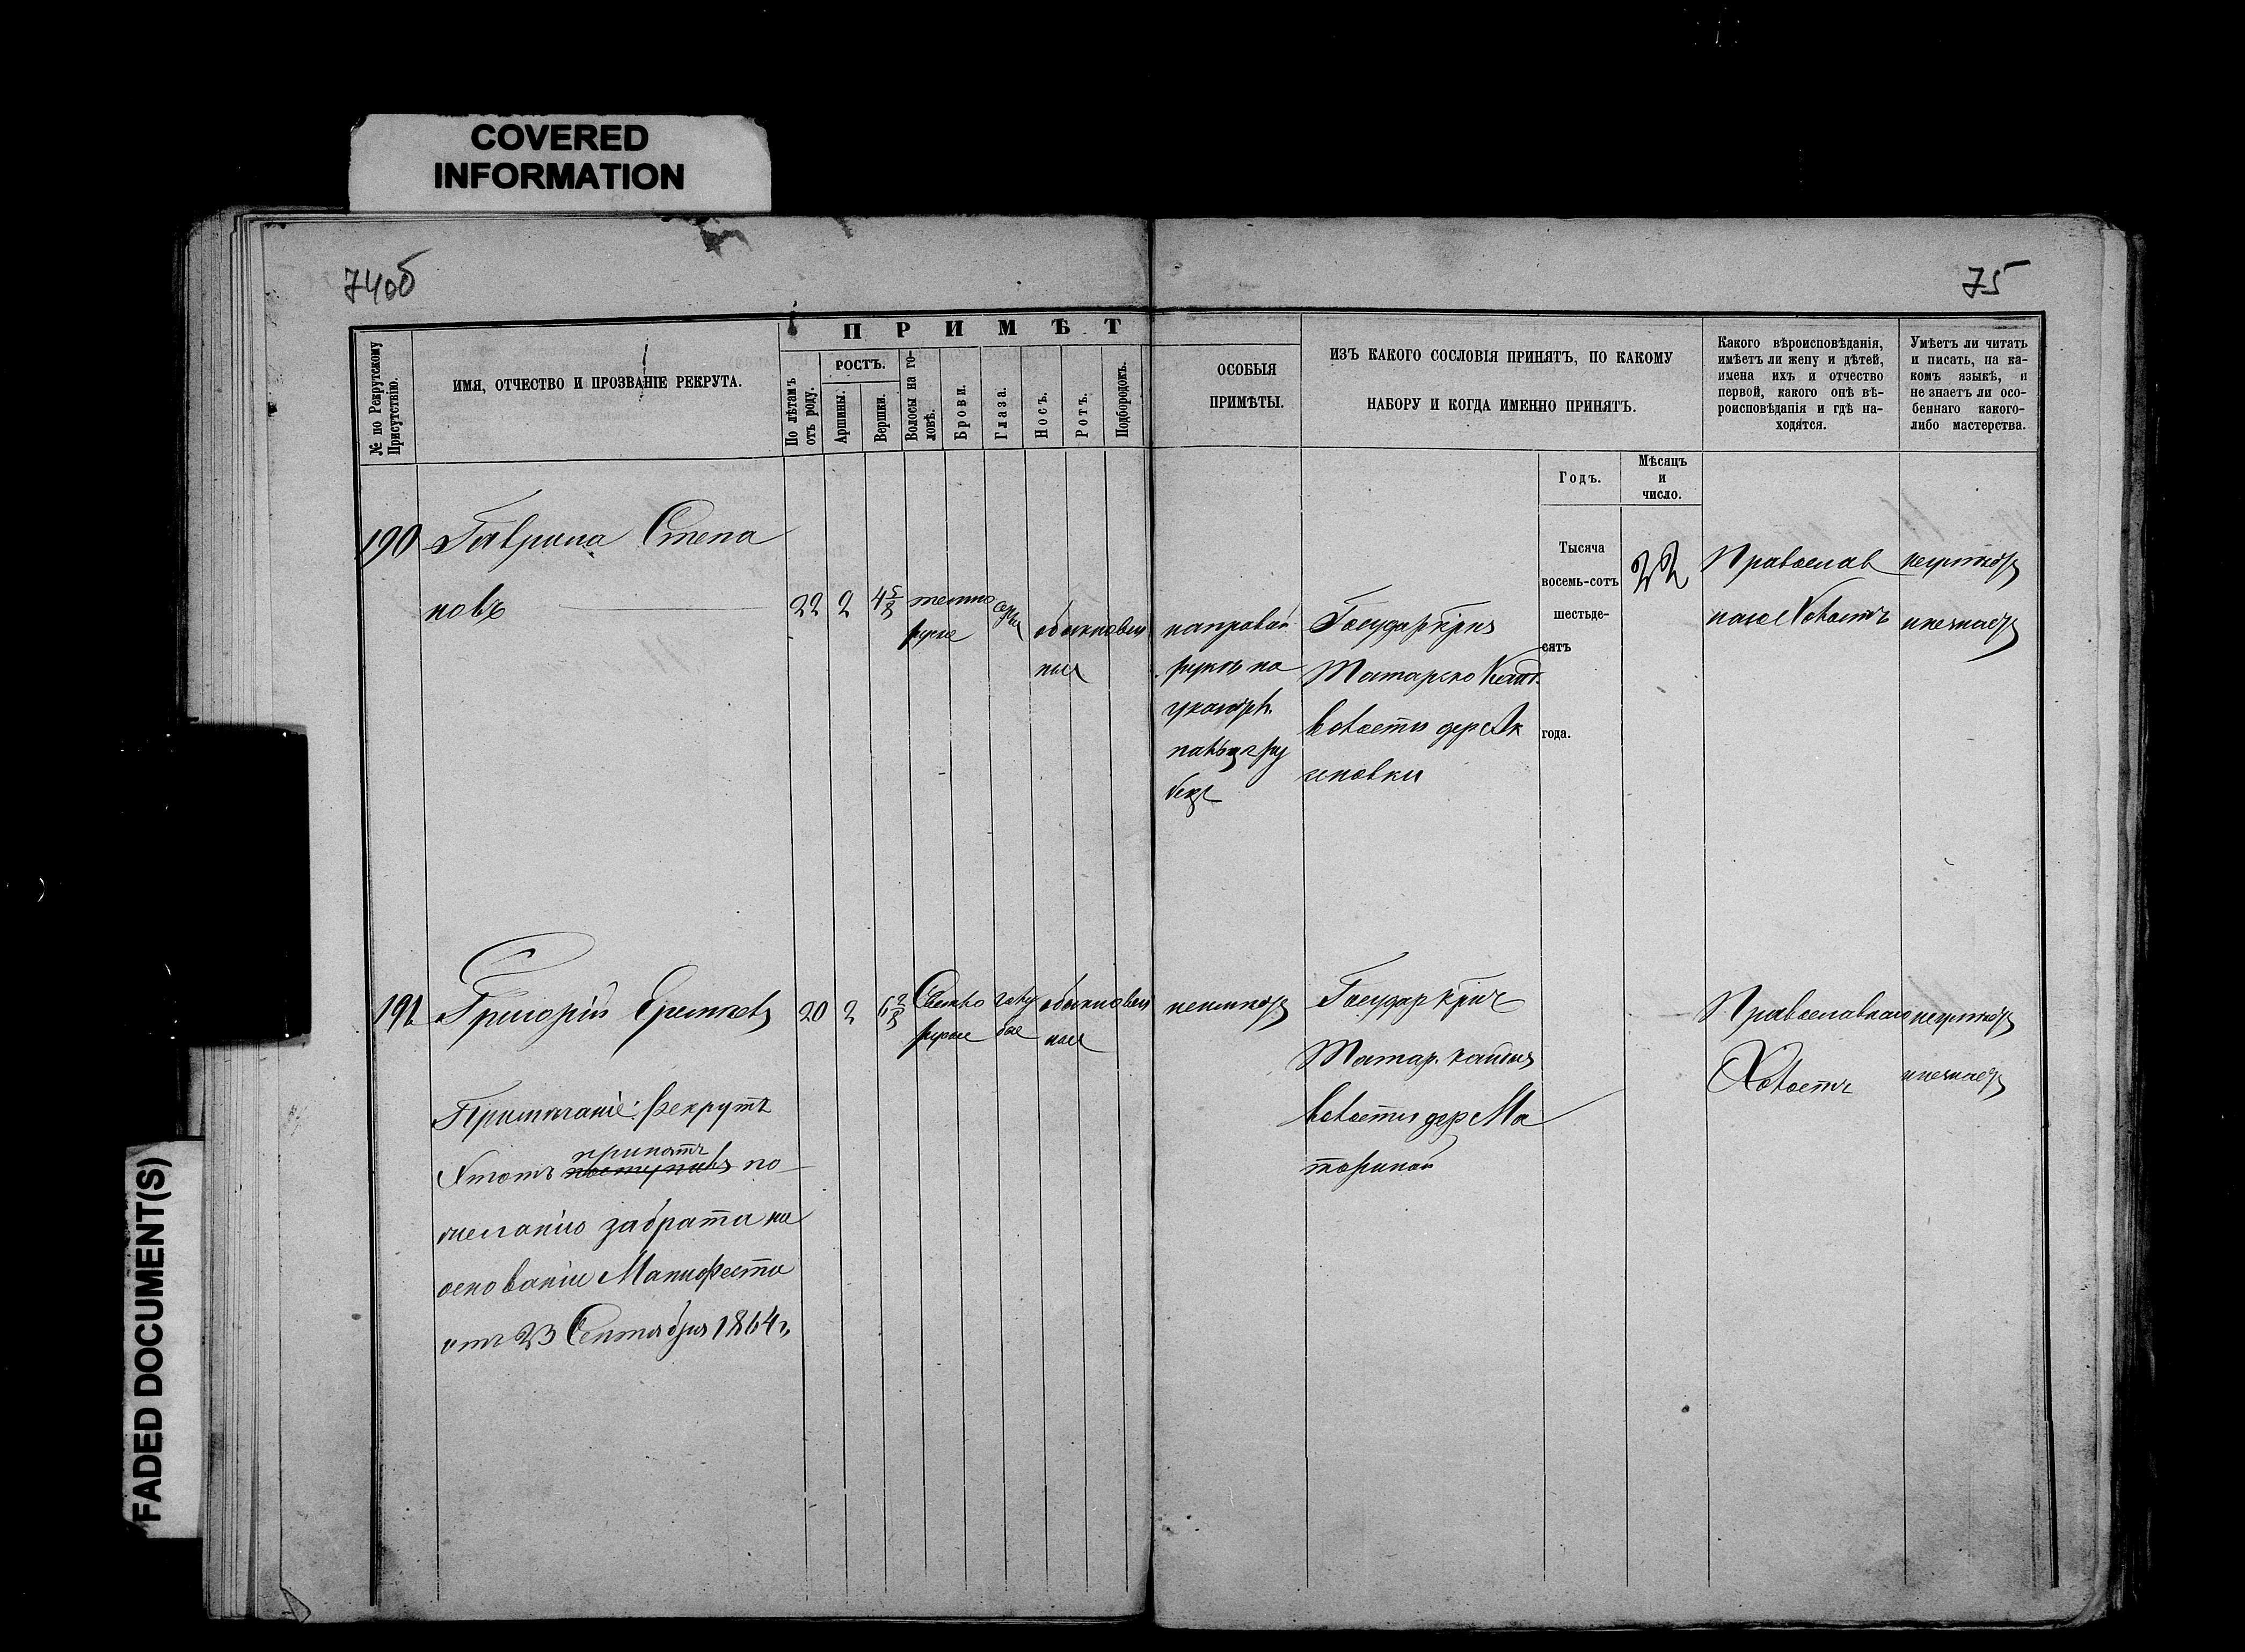 COVERED
INFORMATION
FADED DOCUMENT(S)
74об
75
ПРИМѢТ
№ по Рекрутскому
Присутствію.
ИМЯ, ОТЧЕСТВО И ПРОЗВАНІЕ РЕКРУТА.
По лѣтамъ
отъ роду.
РОСТЪ.
Аршины.
Вершки.
Волосы на го-
ловѣ.
Брови.
Глаза.
Носъ.
Ротъ.
Подбородокъ.
ОСОБЫЯ
ПРИМѢТЫ.
ИЗЪ КАКОГО СОСЛОВІЯ ПРИНЯТЪ, ПО КАКОМУ
НАБОРУ И КОГДА ИМЕННО ПРИНЯТЪ.
Годъ.
Мѣсяцъ
и
число.
Какого вѣроисповѣданія,
имѣетъ ли жену и дѣтей,
имена ихъ и отчество
первой, какого онѣ вѣ-
роисповѣданія и гдѣ на-
ходятся.
Умѣетъ ли читать
и писать, на ка-
комъ языкѣ, и
не знаетъ ли осо-
беннаго какого-
либо мастерства.
190 Гаврила Степа
новъ
22 2 4 5/8 темно
русые
обыкновен
ные
на правой
рукѣ на
рубецъ
Государ крес
Татарско
волости дер Ак
шновки
Тысяча
восемь-сотъ
шестьде-
сятъ
года.
22
Православ
наго Холостъ
неумѣетъ
и незнаетъ
191 Григорій Еремѣевъ
20 2 6 2/8 Свѣтло
русые
голу
бые
обыкновен
ные
неимѣетъ
Государ крес
Татар. Кандыз
волости дер Ма
ториной
Православнаго
Холостъ
неумѣетъ
и незнаетъ
Примѣчаніе: Рекрутъ
этотъ поступилъ принятъ по
желанію за брата на
основаніи Манифеста
отъ 23 Сентября 1864 г.